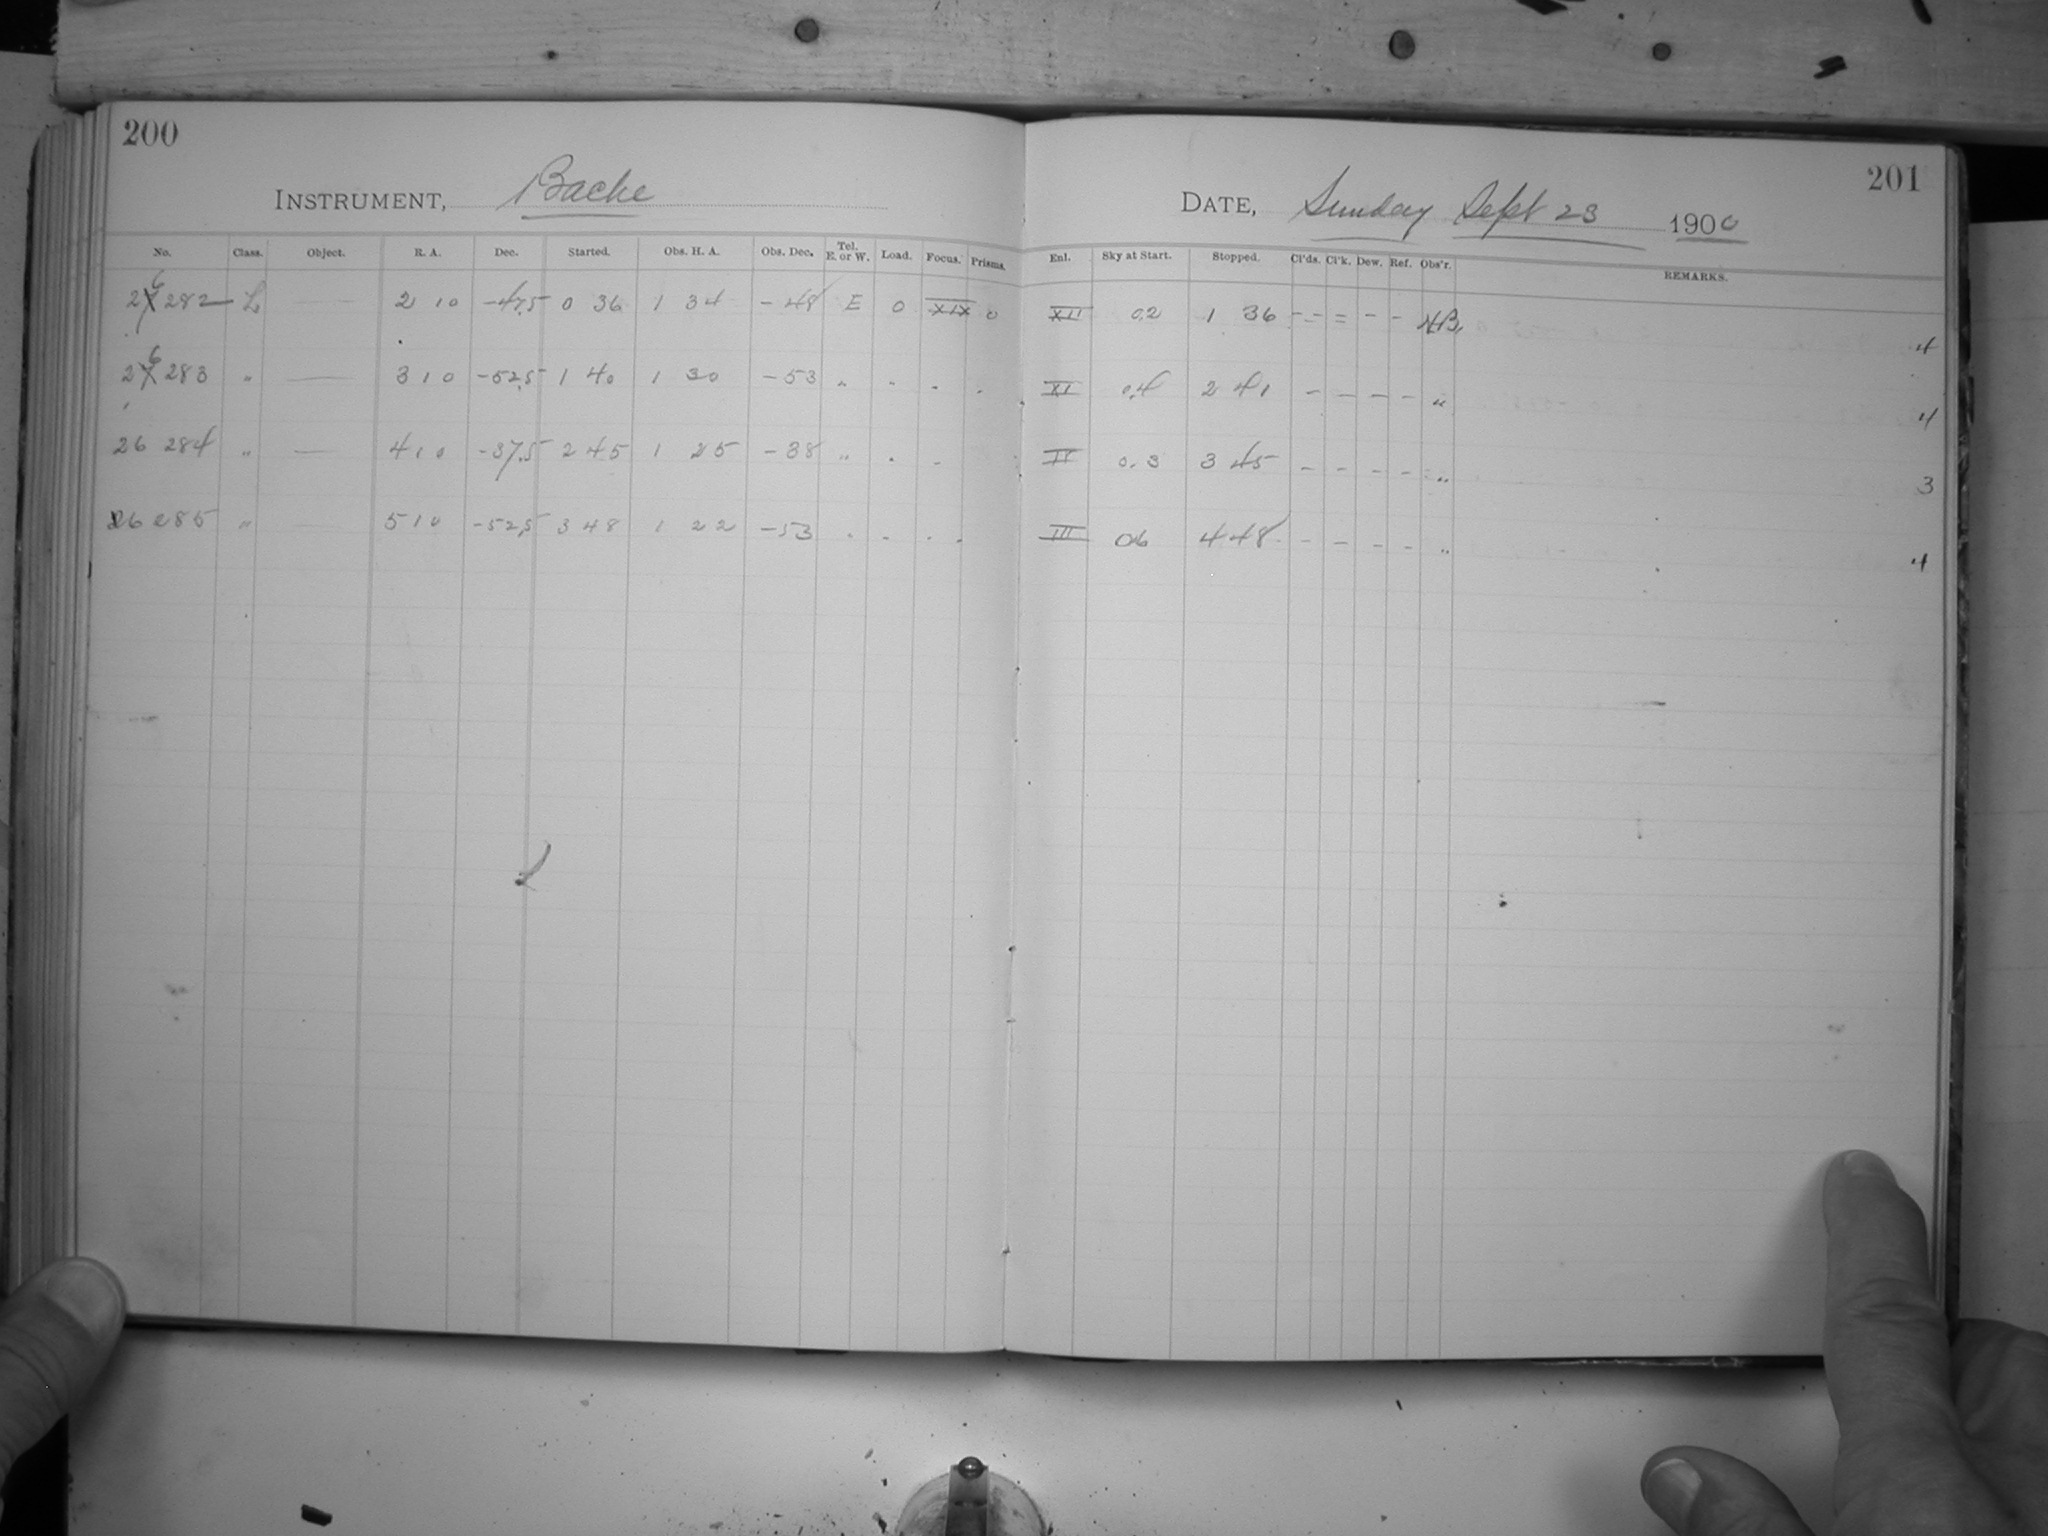 200
INSTRUMENT, Bache
No. Class. Object. R. A. Dec. Started. Obs. H. A. Obs. Dec. Tel. E. or W. Load. Focus. Prisms.
26 282 L — 2 10 -47.5 0 36 1 34 - 48 E 0 XIX 0
26 283 " — 3 10 -52.5 1 40 1 30 - 53 " " " "
26 284 " — 4 10 -37.5 2 45 1 25 - 38 " " "
26 285 " — 5 10 -52.5 3 48 1 22 - 53 " " " "
201
DATE, Sunday Sept 23 1900
Enl. Sky at Start. Stopped. Cl'ds. Cl'k. Dew. Ref. Obs'r. REMARKS.
XII 0.2 1 36 - - - - - 4
XI 0.4 2 41 - - - - " 4
II 0.3 3 45 - - - - " 3
III 0.6 4 48 - - - - " 4